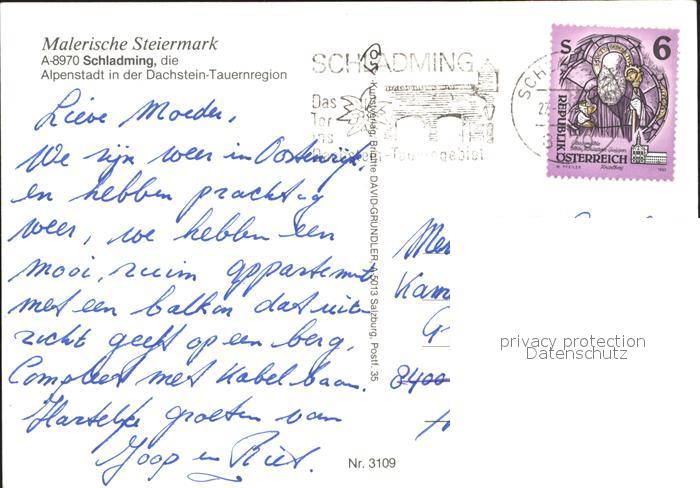 Malerische Steiermark
A-8970 Schladming, die
Alpenstadt in der Dachstein-Tauernregion
SCHLADMING
Das
Tor
ins
Dachstein-Tauerngebiet
SCH
27.
S 6
REPUBLIK
ÖSTERREICH
W. PFEILER
1993
Lieve Moeder,
We zijn weer in Oostenrijk,
en hebben prachtig
weer, we hebben een
mooi, ruim appartement
met een balkon dat uit
zicht geeft op een berg.
Compleet met kabelbaan.
Hartelijke groeten van
Joop en Riet.
Kunstverlag Brigitte DAVID-GRÜNDLER, A-5013 Salzburg, Postf. 35
Nr. 3109
Mev
Kam
G
8400
privacy protection
Datenschutz